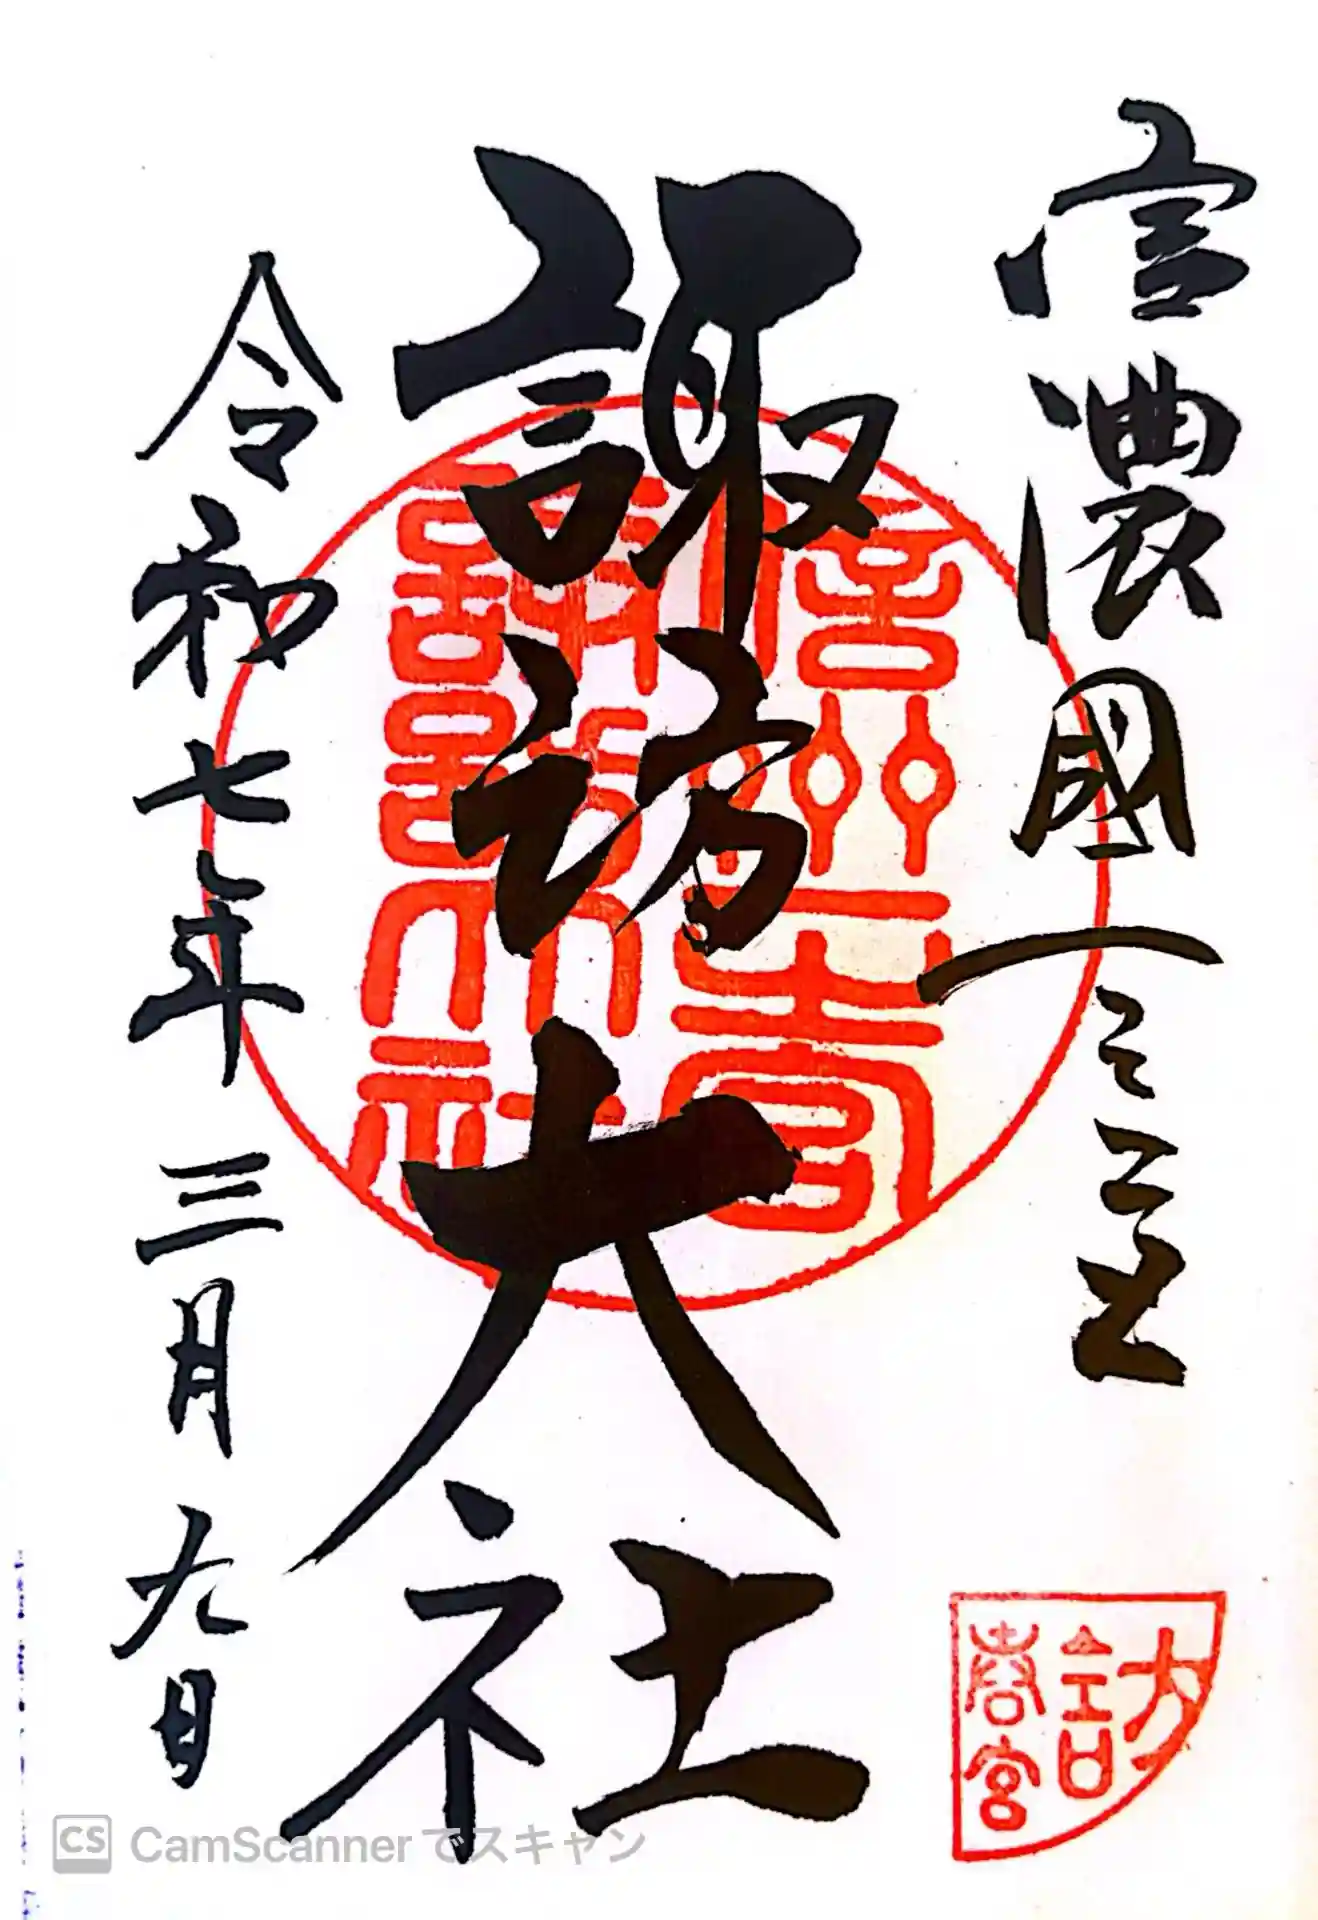 信濃國一之宮
諏訪大社
令和七年三月九日
信州一之宮
諏訪大社
訪
春宮
CS CamScannerでスキャン